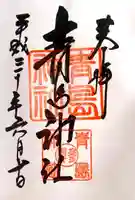 奉拝
青島神社
平成三十年六月十日
青島
神社